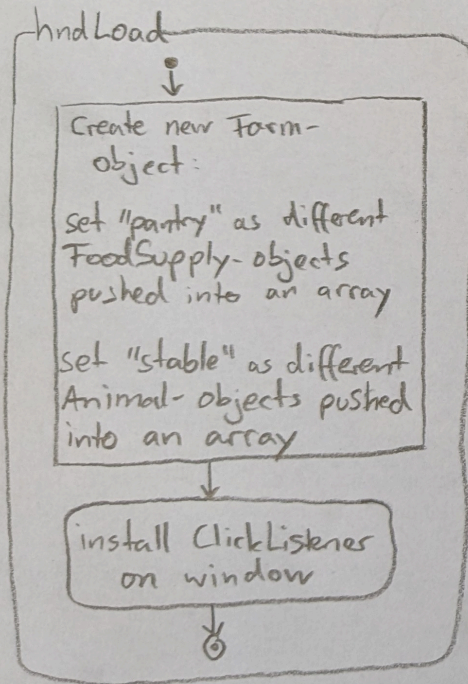 hndLoad
Create new Farm-
object:
set "pantry" as different
FoodSupply-objects
pushed into an array
set "stable" as different
Animal-objects pushed
into an array
install ClickListener
on window